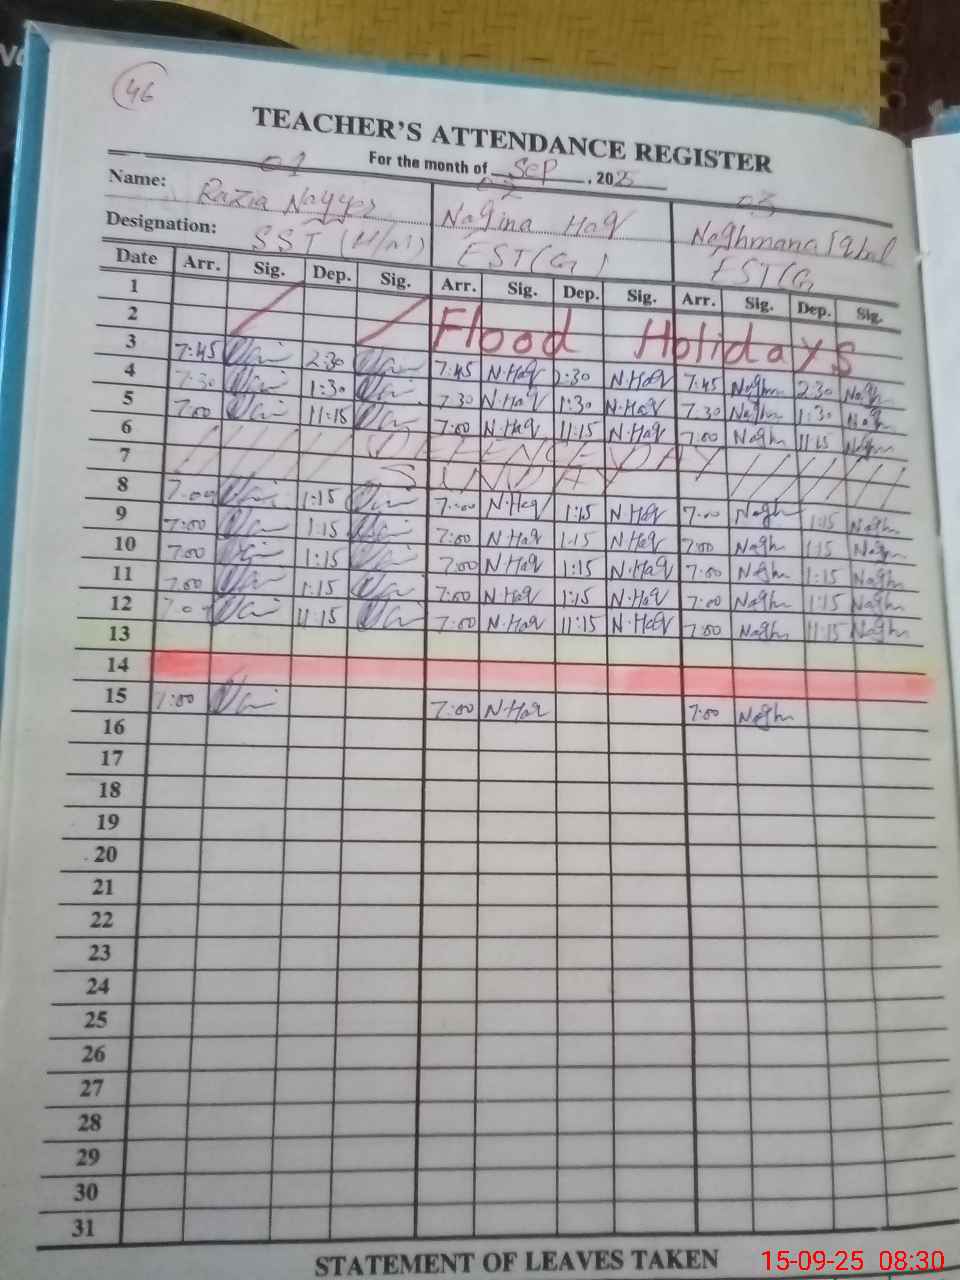 46
TEACHER'S ATTENDANCE REGISTER
For the month of Sep, 2025
01 02 03
Name: Razia Nayyer Nagina Haq Naghmana Iqbal
Designation: SST (H/M) EST(G) EST(G)
Date Arr. Sig. Dep. Sig. Arr. Sig. Dep. Sig. Arr. Sig. Dep. Sig.
1
2 Flood Holidays
3 7:45 2:30 7:45 N.Haq 2:30 N.Haq 7:45 Nagh 2:30 Nagh
4 7:30 1:30 7:30 N.Haq 1:30 N.Haq 7:30 Nagh 1:30 Nagh
5 7:00 11:15 7:00 N.Haq 11:15 N.Haq 7:00 Nagh 11:15 Nagh
6 DEFENCE DAY
7 SUNDAY
8 7:00 1:15 7:00 N.Haq 1:15 N.Haq 7:00 Nagh 1:15 Nagh
9 7:00 1:15 7:00 N.Haq 1:15 N.Haq 7:00 Nagh 1:15 Nagh
10 7:00 1:15 7:00 N.Haq 1:15 N.Haq 7:00 Nagh 1:15 Nagh
11 7:00 1:15 7:00 N.Haq 1:15 N.Haq 7:00 Nagh 1:15 Nagh
12 7:0 11:15 7:00 N.Haq 11:15 N.Haq 7:00 Nagh 11:15 Nagh
13
14
15 7:00 7:00 N.Haq 7:00 Nagh
16
17
18
19
20
21
22
23
24
25
26
27
28
29
30
31
STATEMENT OF LEAVES TAKEN
15-09-25 08:30